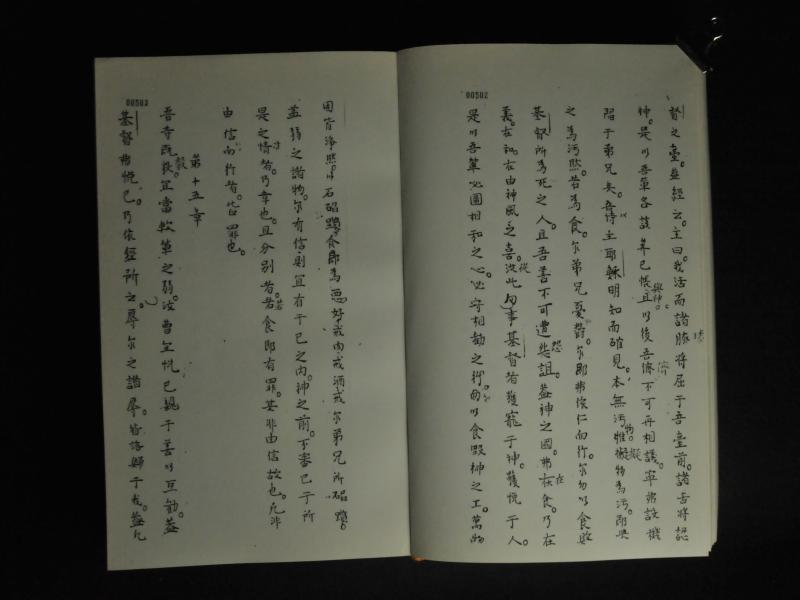 00502
督之臺。蓋經云。主曰。我活而諸膝將屈于吾臺前。諸舌將認
神。是以吾輩各該算己帳與神。且以後吾儕不可再相議。寧弗設機
陷于弟兄矣。吾恃主耶穌明知而確見。本無污物。惟擬物為污。即與
之為污然。若為食。尔弟兄憂鬱。尔即弗依仁而行。尔勿以食敗
基督所為死之人。且吾善不可遭怨詛。蓋神之國。弗在食。乃在
義。在和。在由神風之喜。從此事基督者獲寵于神。獲悅于人。
是以吾輩必圖相和之心。必守相勸之行。勿以食毀神之工。萬物
00503
固皆淨然。以石踏躓食即為惡。好戒肉戒酒戒尔弟兄所踏躓。
並弱之諸物。尔有信。則宜有于己之內。神之前。不審己于所
是之情者。乃幸也。且分別者。若食即有罪。其非由信故也。凡非
由信而行者。皆罪也。
第十五章
吾等既毅。正當軟輩之弱。汝曹勿悅己。親于善以互勸。蓋
基督弗悅己。乃依經所云。辱尔之諸辱。皆落歸于我。蓋凡